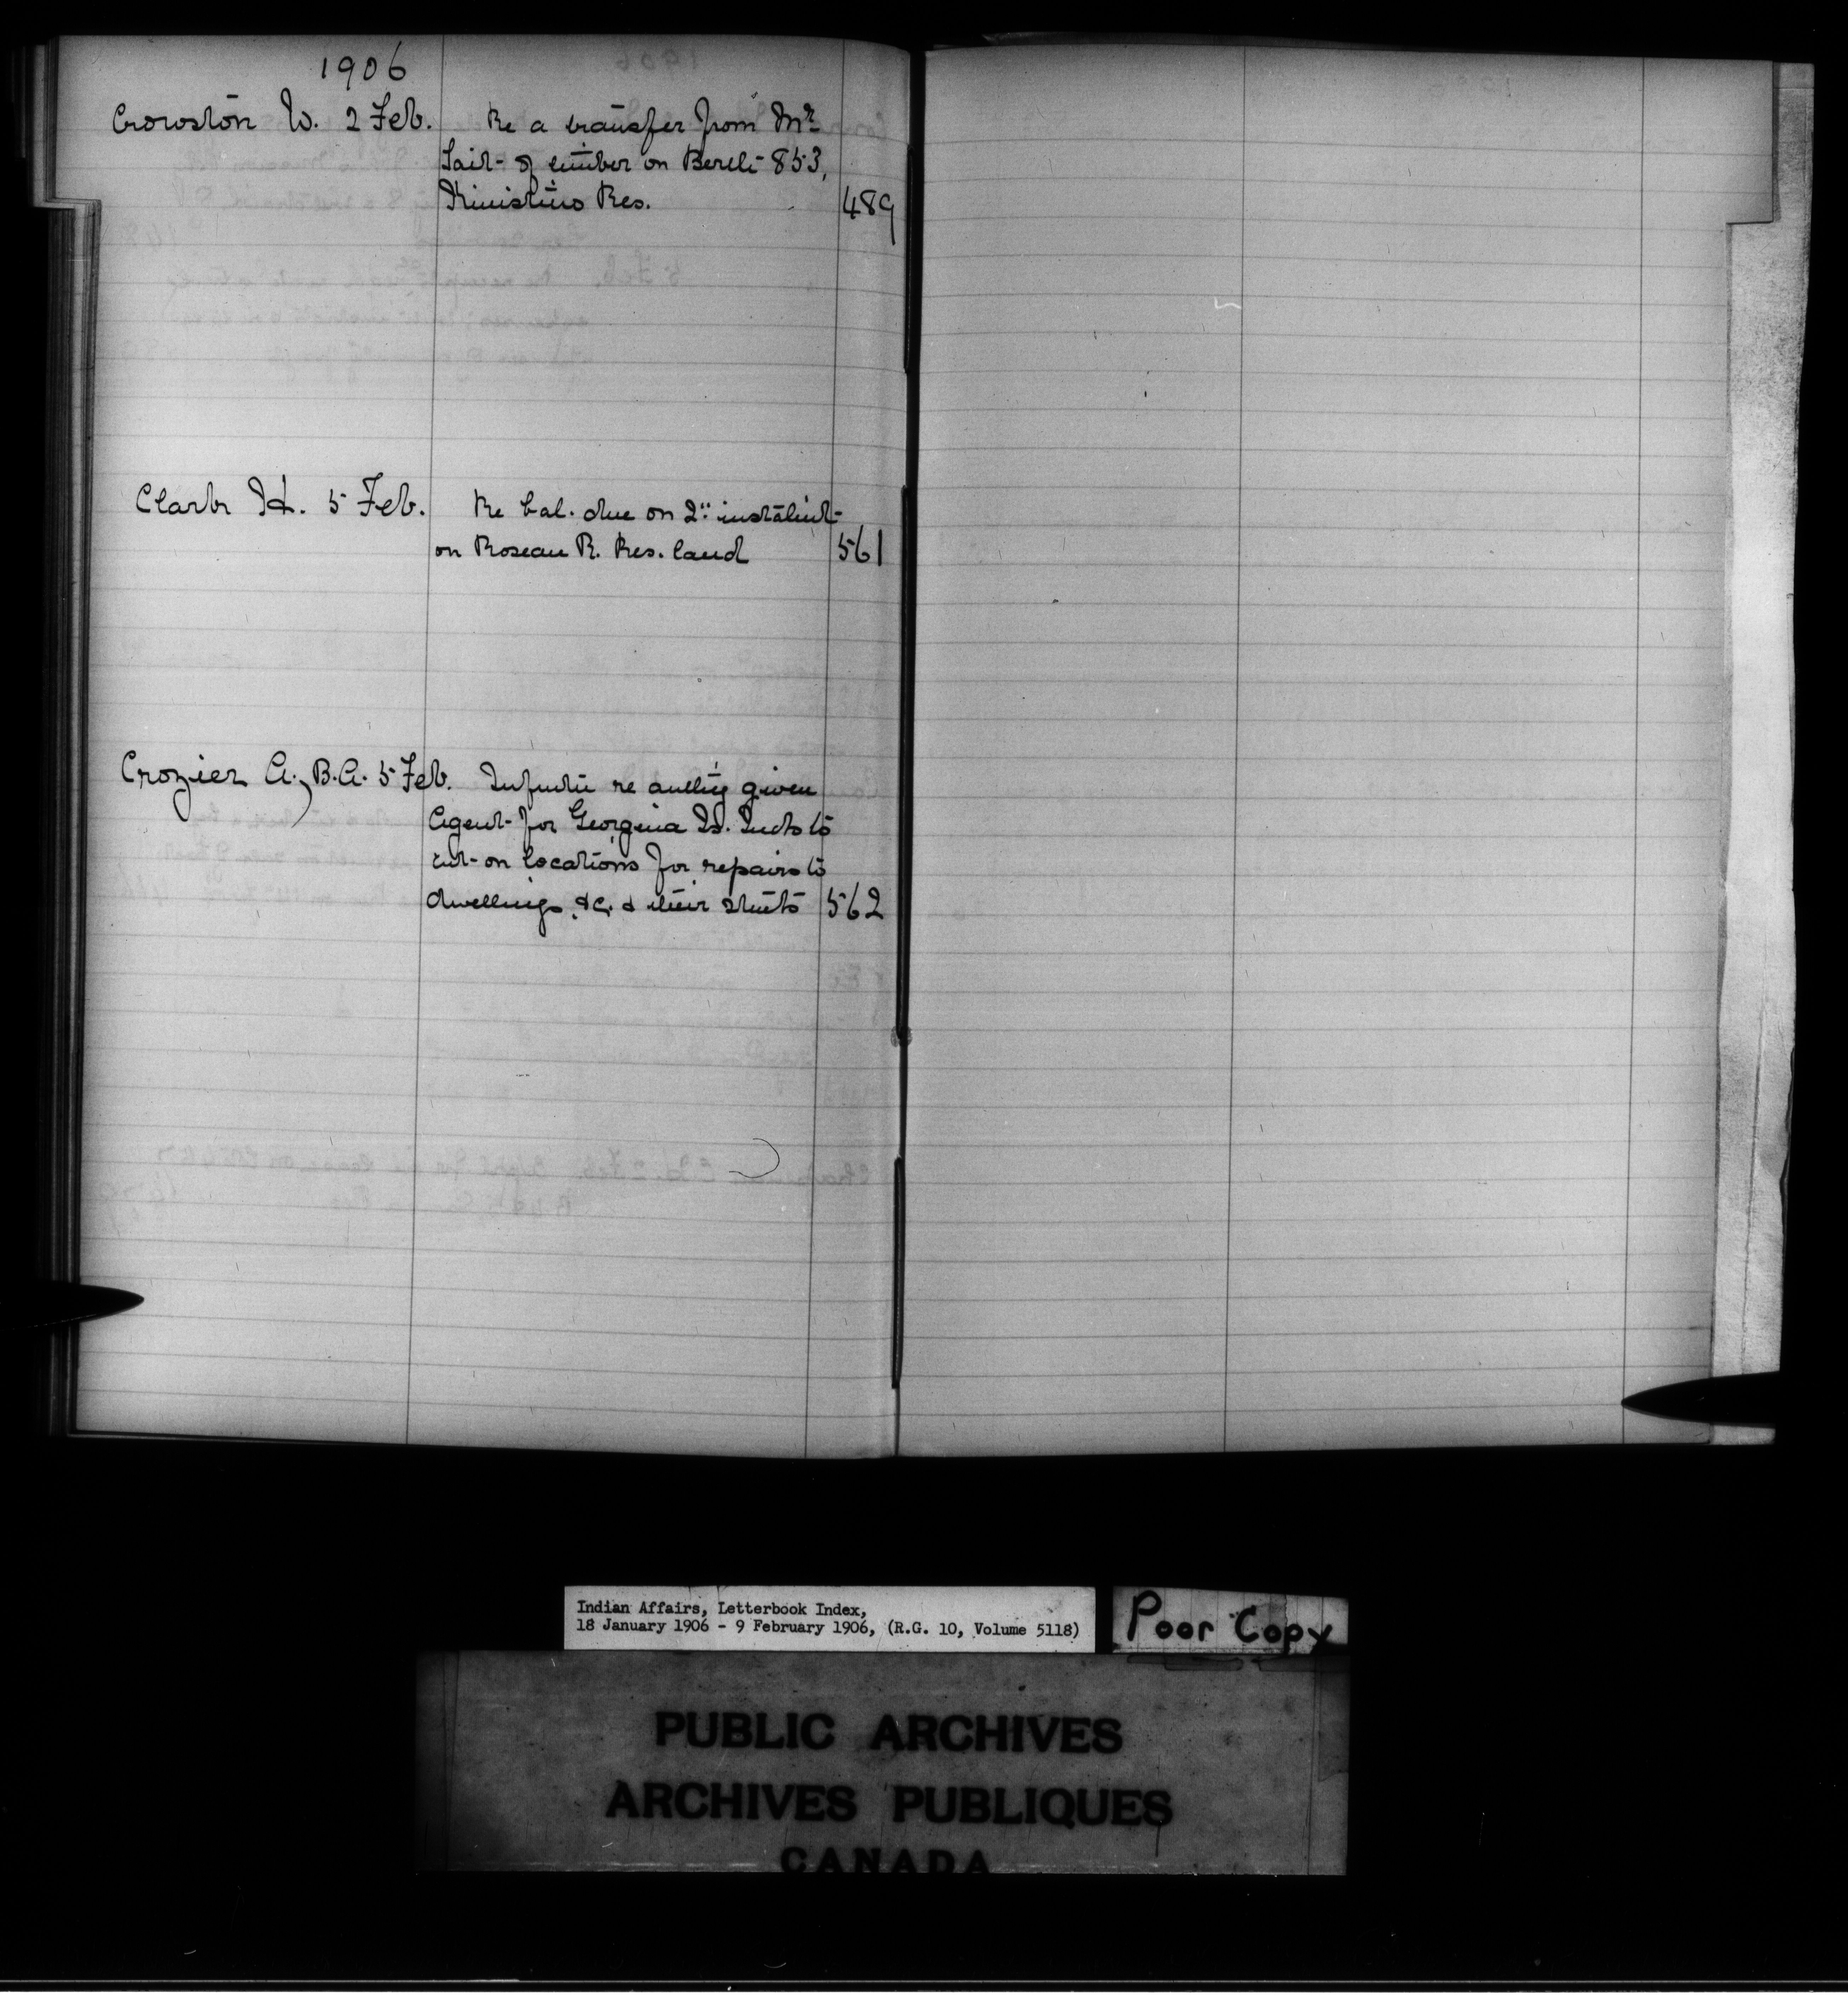 1906
Crowston W. 2 Feb. Re a transfer from Mr
Tait of timber on Berth 853,
Kinistino Res. 489
Clark H. 5 Feb. Re bal. due on 2" instalmt
on Roseau R. Res. land 561
Crozier A., B.A. 5 Feb. re authy given
Agent for Georgina Is. Inds to
cut on locations for repairs to
dwellings &c. & their 562
Indian Affairs, Letterbook Index,
18 January 1906 - 9 February 1906, (R.G. 10, Volume 5118)
Poor Copy
PUBLIC ARCHIVES
ARCHIVES PUBLIQUES
CANADA